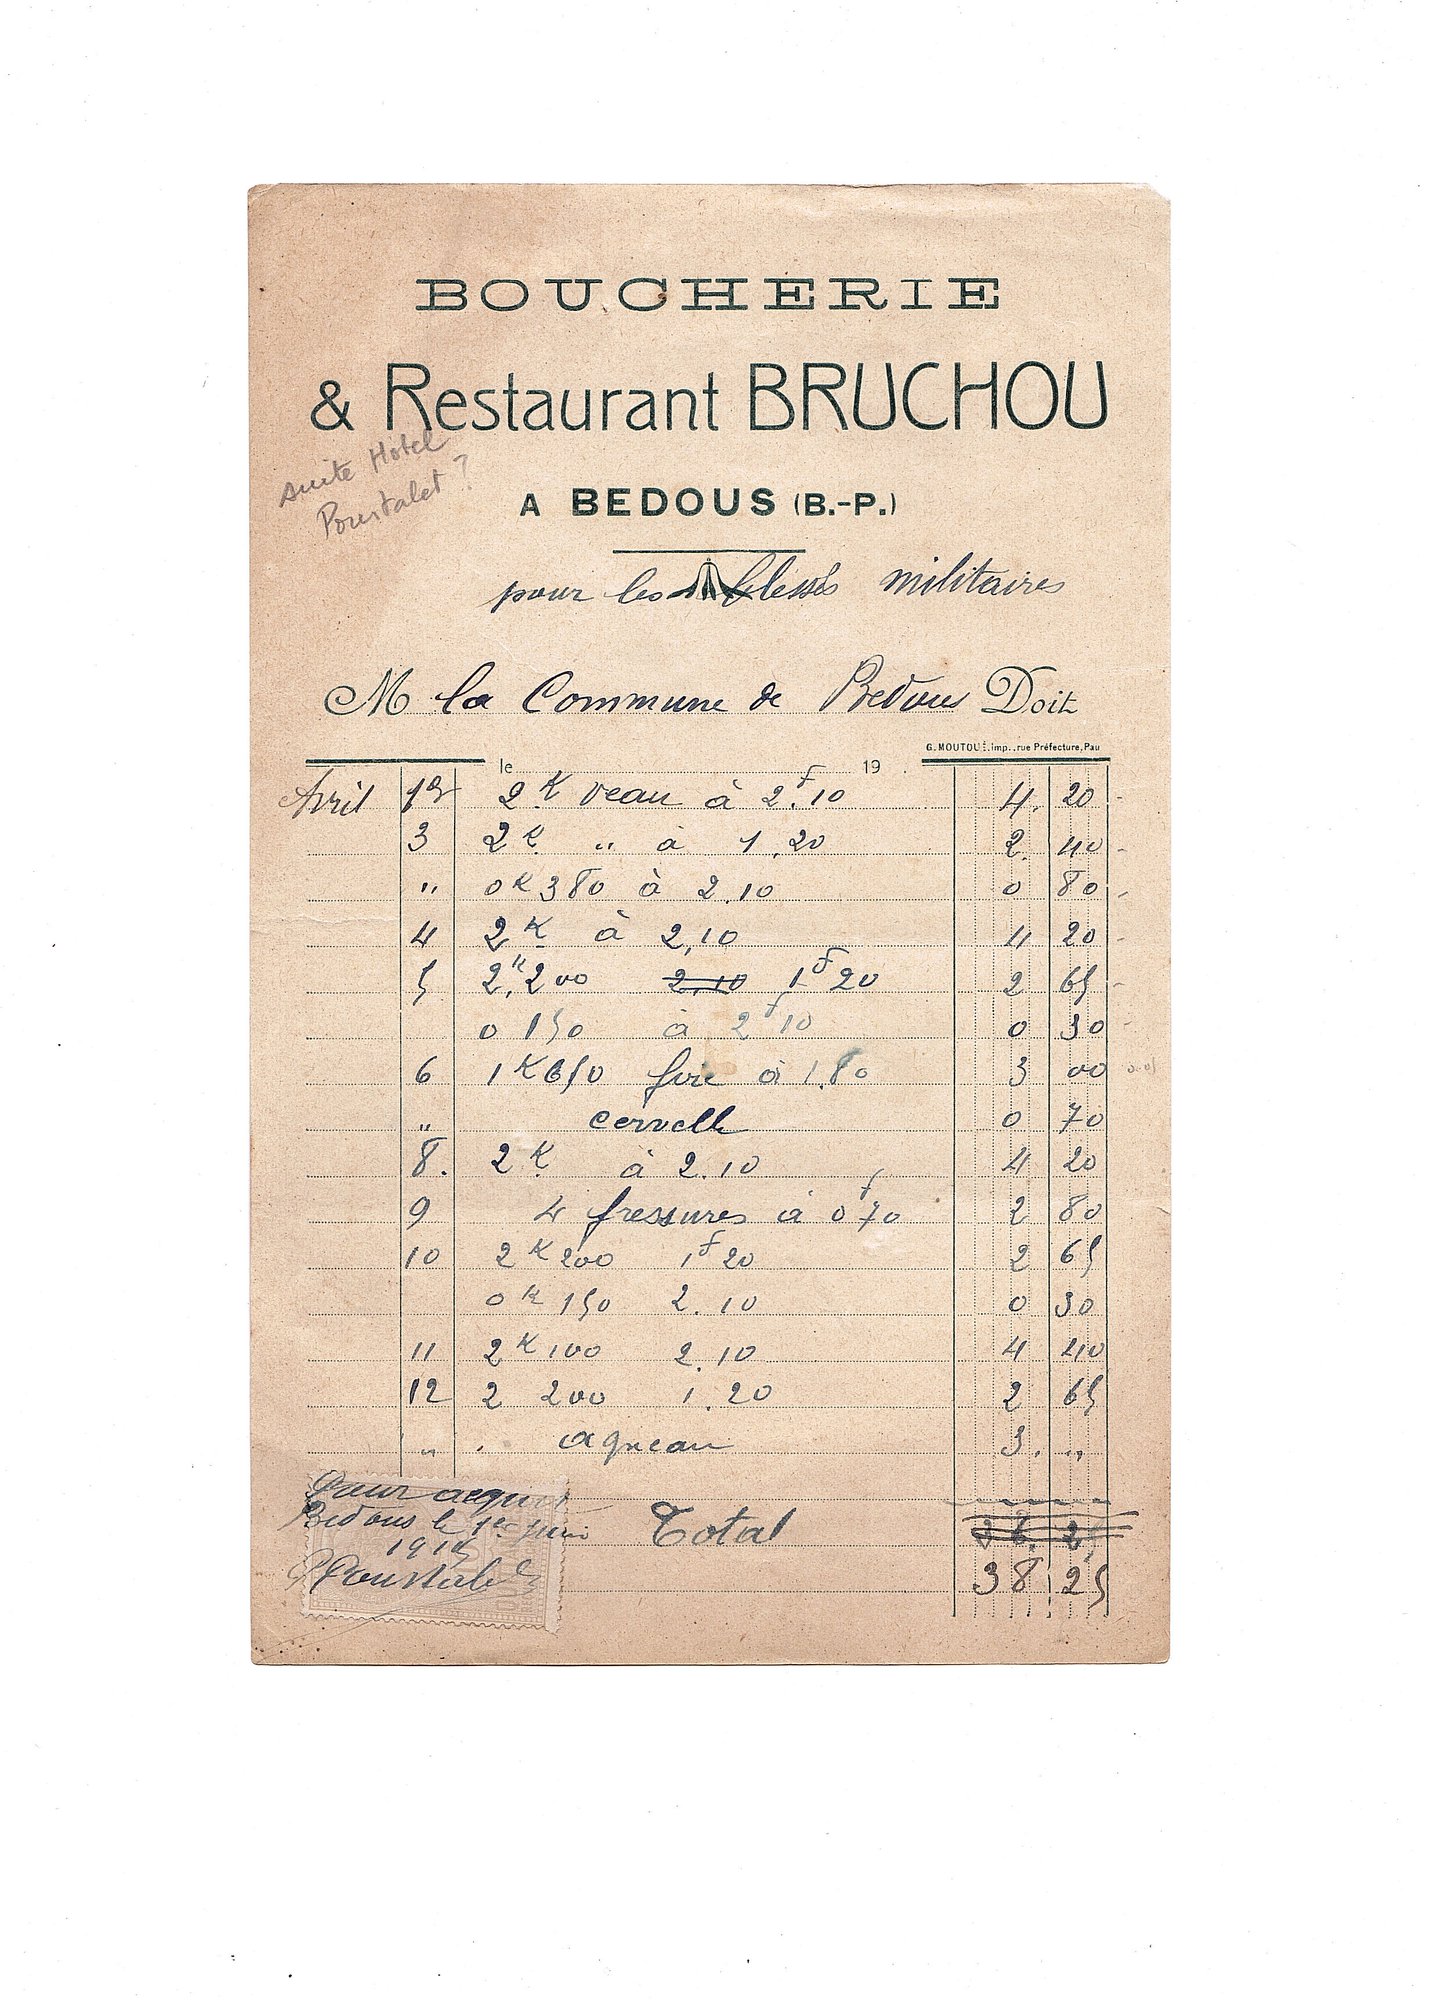 BOUCHERIE
& Restaurant BRUCHOU
suite Hôtel
Poustalet ?
A BEDOUS (B.-P.)
pour les blessés militaires
M la Commune de Bedous Doit
G. MOUTOUÉ, imp., rue Préfecture, Pau
le 19 .
Avril 1er 2K veau à 2f.10 4. 20
3 2K. " à 1.20 2. 40
" 0K380 à 2.10 0 80
4 2K à 2,10 4 20
5 2K.200 2,10 1f20 2 65
0 150 à 2f10 0 30
6 1K650 foie à 1.80 3 00
" cervelle 0 70
8. 2K à 2.10 4 20
9 4 fressures à 0f70 2 80
10 2K200 1f20 2 65
0K150 2.10 0 30
11 2K100 2.10 4 40
12 2 200 1.20 2 65
" agneau 3. "
Pour acquit
Bedous le 1er juin
1915
Poustalet
Total
38 25